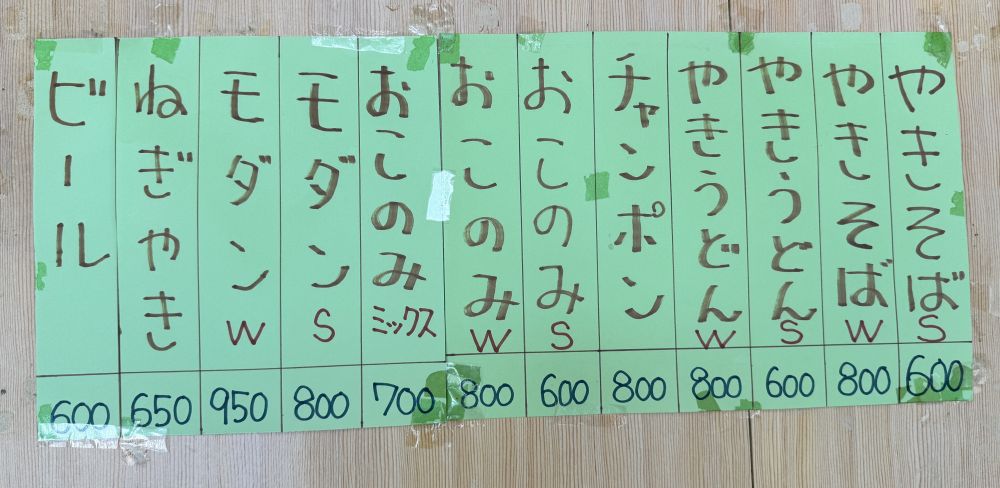 やきそばS 600
やきそばW 800
やきうどんS 600
やきうどんW 800
チャンポン 800
おこのみS 600
おこのみW 800
おこのみミックス 700
モダンS 800
モダンW 950
ねぎやき 650
ビール 600